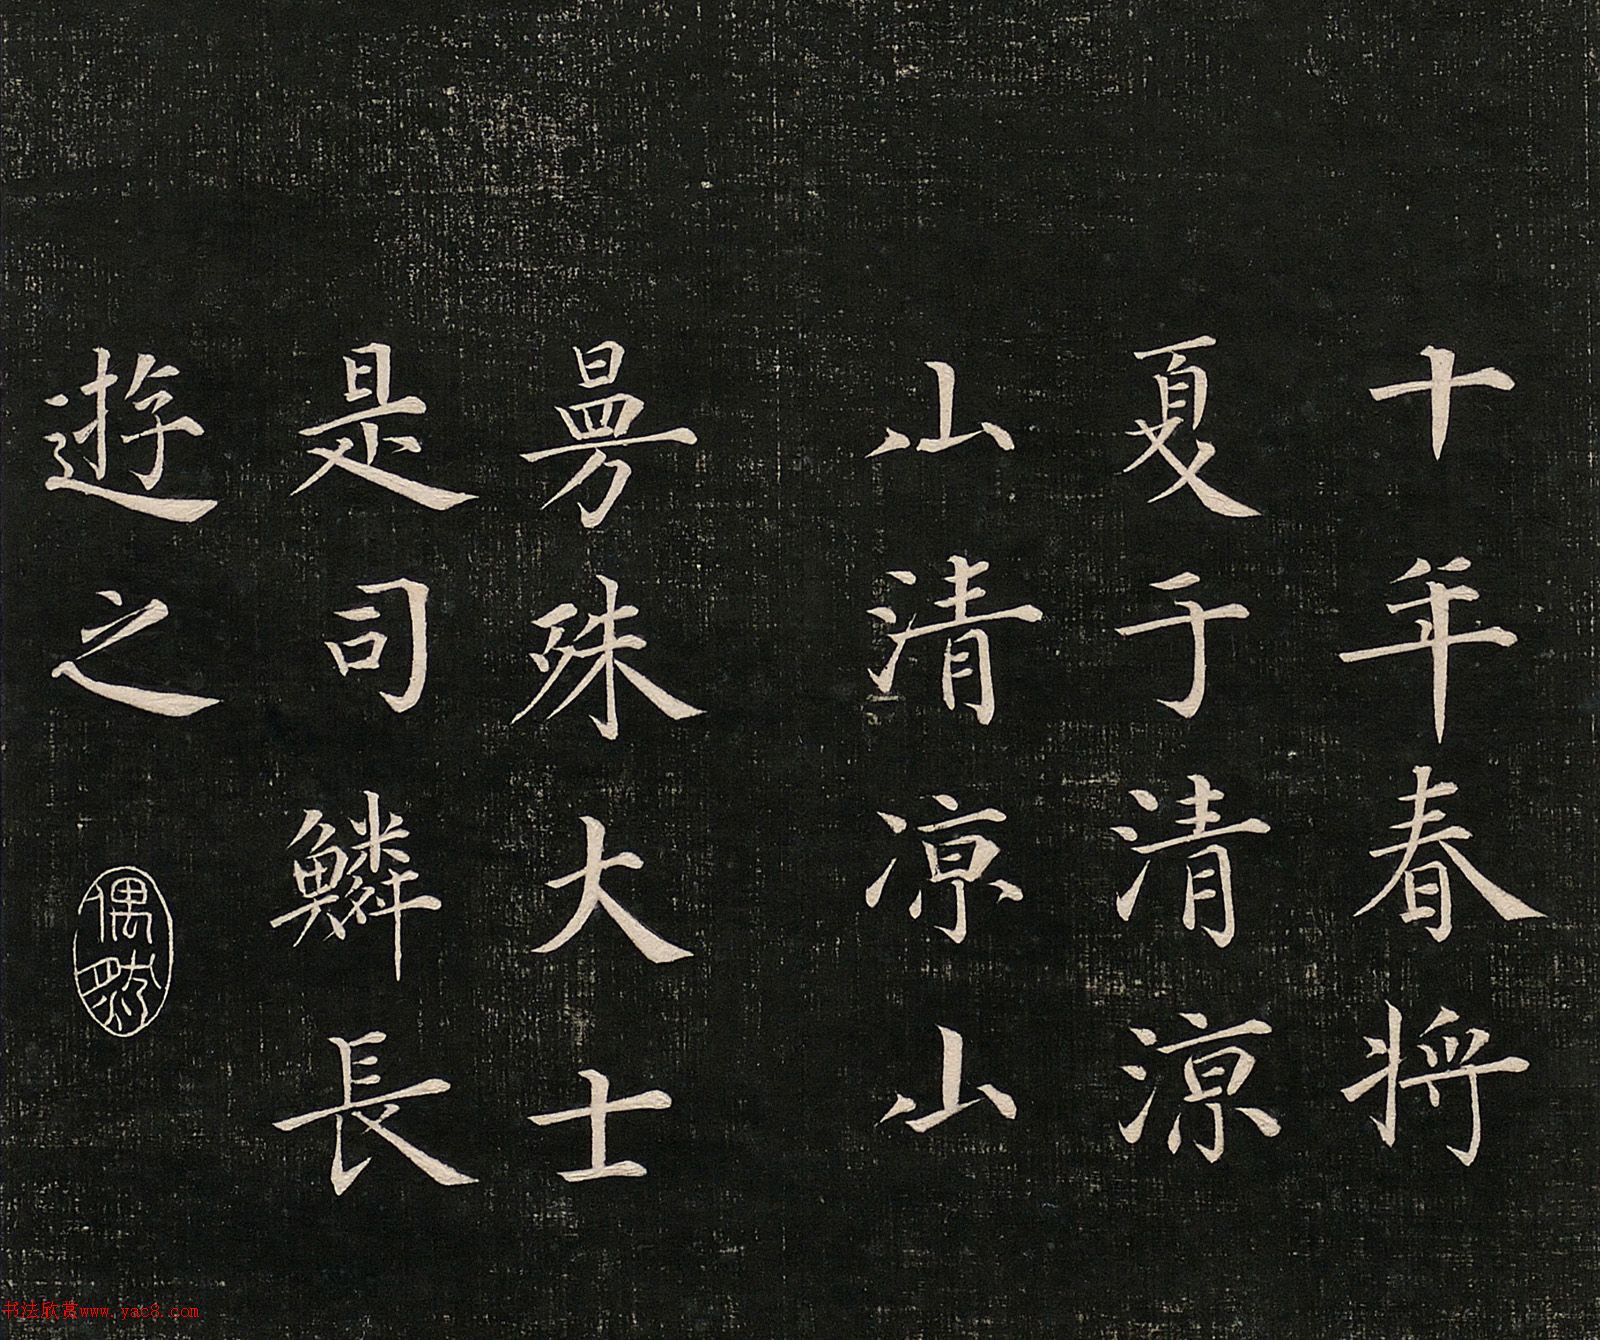 十年春將
夏于清涼
山清凉山
曼殊大士
是司鱗長
遊之
偶然
书法欣赏www.yac8.com